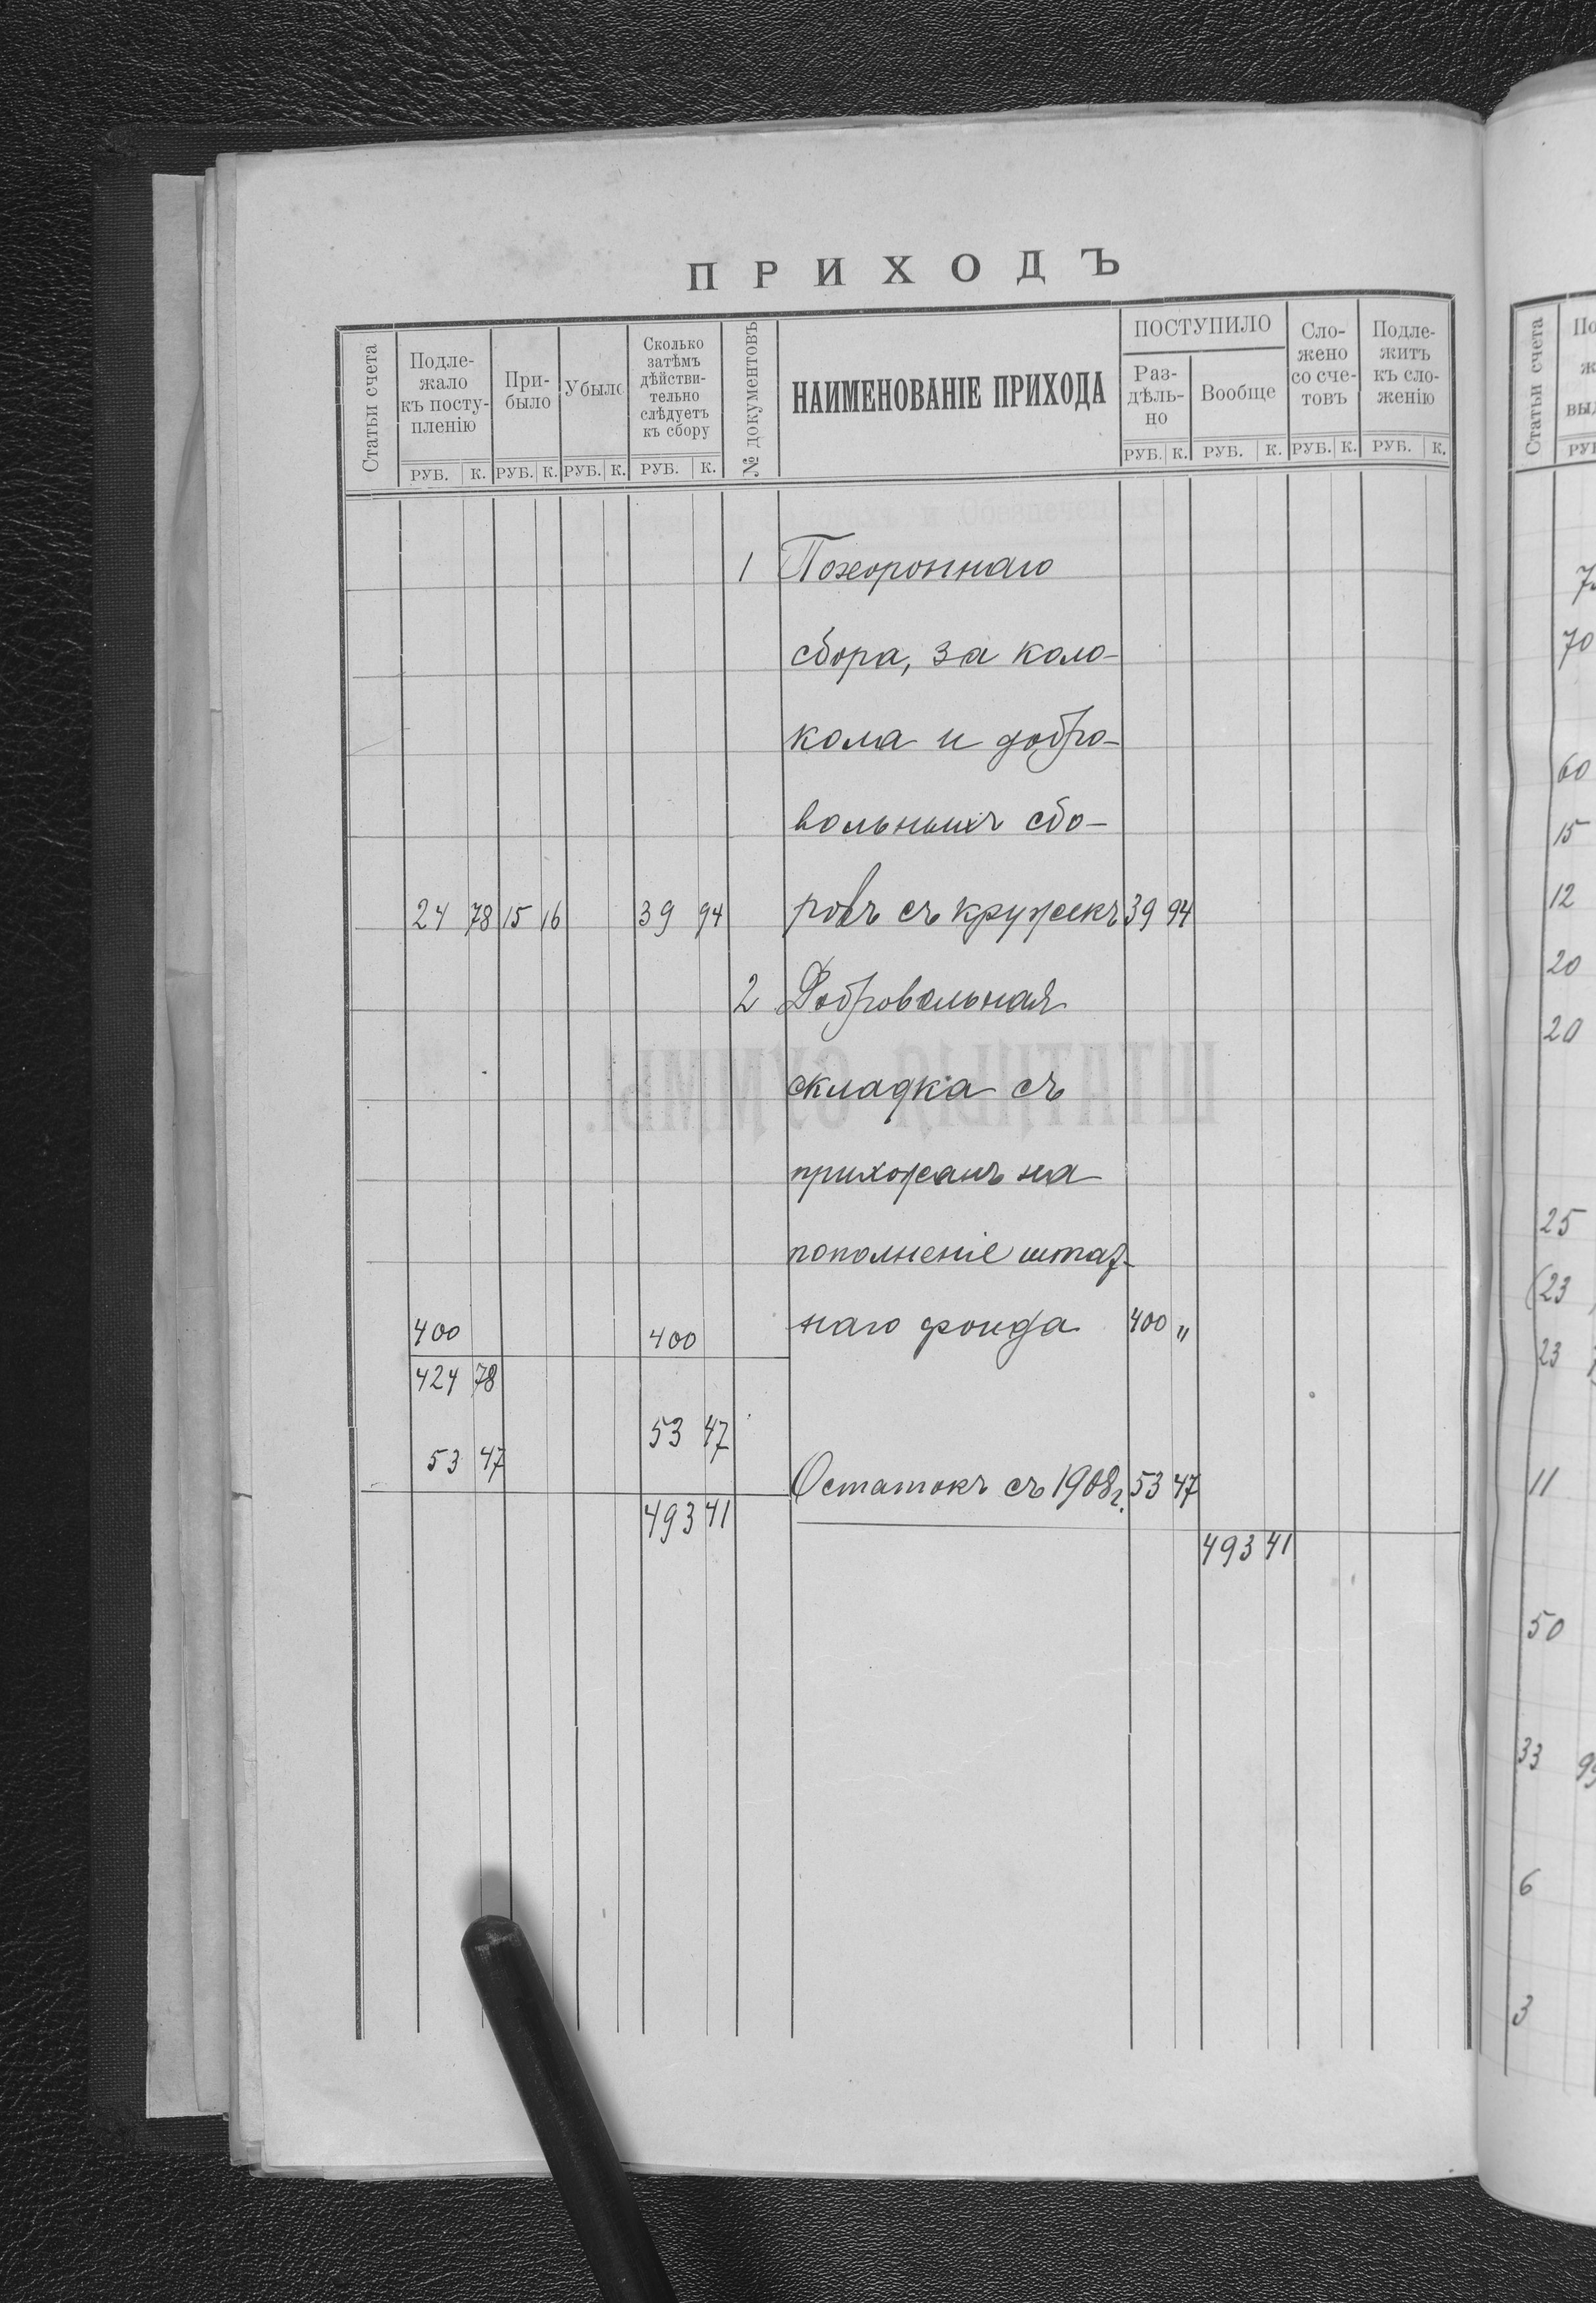 ПРИХОДЪ
Статьи счета
Подле-
жало
къ посту-
пленію
При-
было
Убыло
Сколько
затѣмъ
дѣйстви-
тельно
слѣдуетъ
къ сбору
№ документовъ
НАИМЕНОВАНІЕ ПРИХОДА
ПОСТУПИЛО
Раз-
дѣль-
но
Вообще
Сло-
жено
со сче-
товъ
Подле-
житъ
къ сло-
женію
РУБ. К. РУБ. К. РУБ. К. РУБ. К. РУБ. К. РУБ. К. РУБ. К. РУБ. К.
1 Похороннаго
сбора, за коло-
кола и добро-
вольныхъ сбо-
24 78 15 16 39 94 ровъ съ кружекъ 39 94
2 Добровольная
складка съ
прихожанъ на
пополненіе штат-
400 400 наго фонда 400 „
424 78
53 47 53 47 Остатокъ съ 1908 г. 53 47
493 41 493 41
Статьи счета
По
ж
выд
РУБ
70
60
15
12
20
20
25
(23
23
11
50
33
6
3